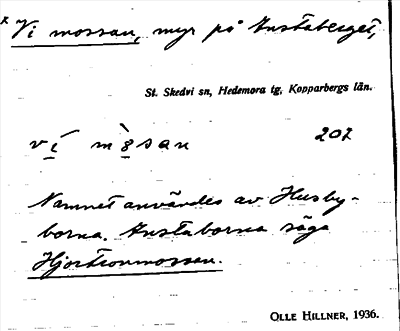 x Vi mossan, myr på Anstaberget,
St. Skedvi sn, Hedemora tg, Kopparbergs län.
vi mɔsan 202
Namnet användes av Husby-
borna. Anstaborna säga
Hjortronmossan.
OLLE HILLNER, 1936.